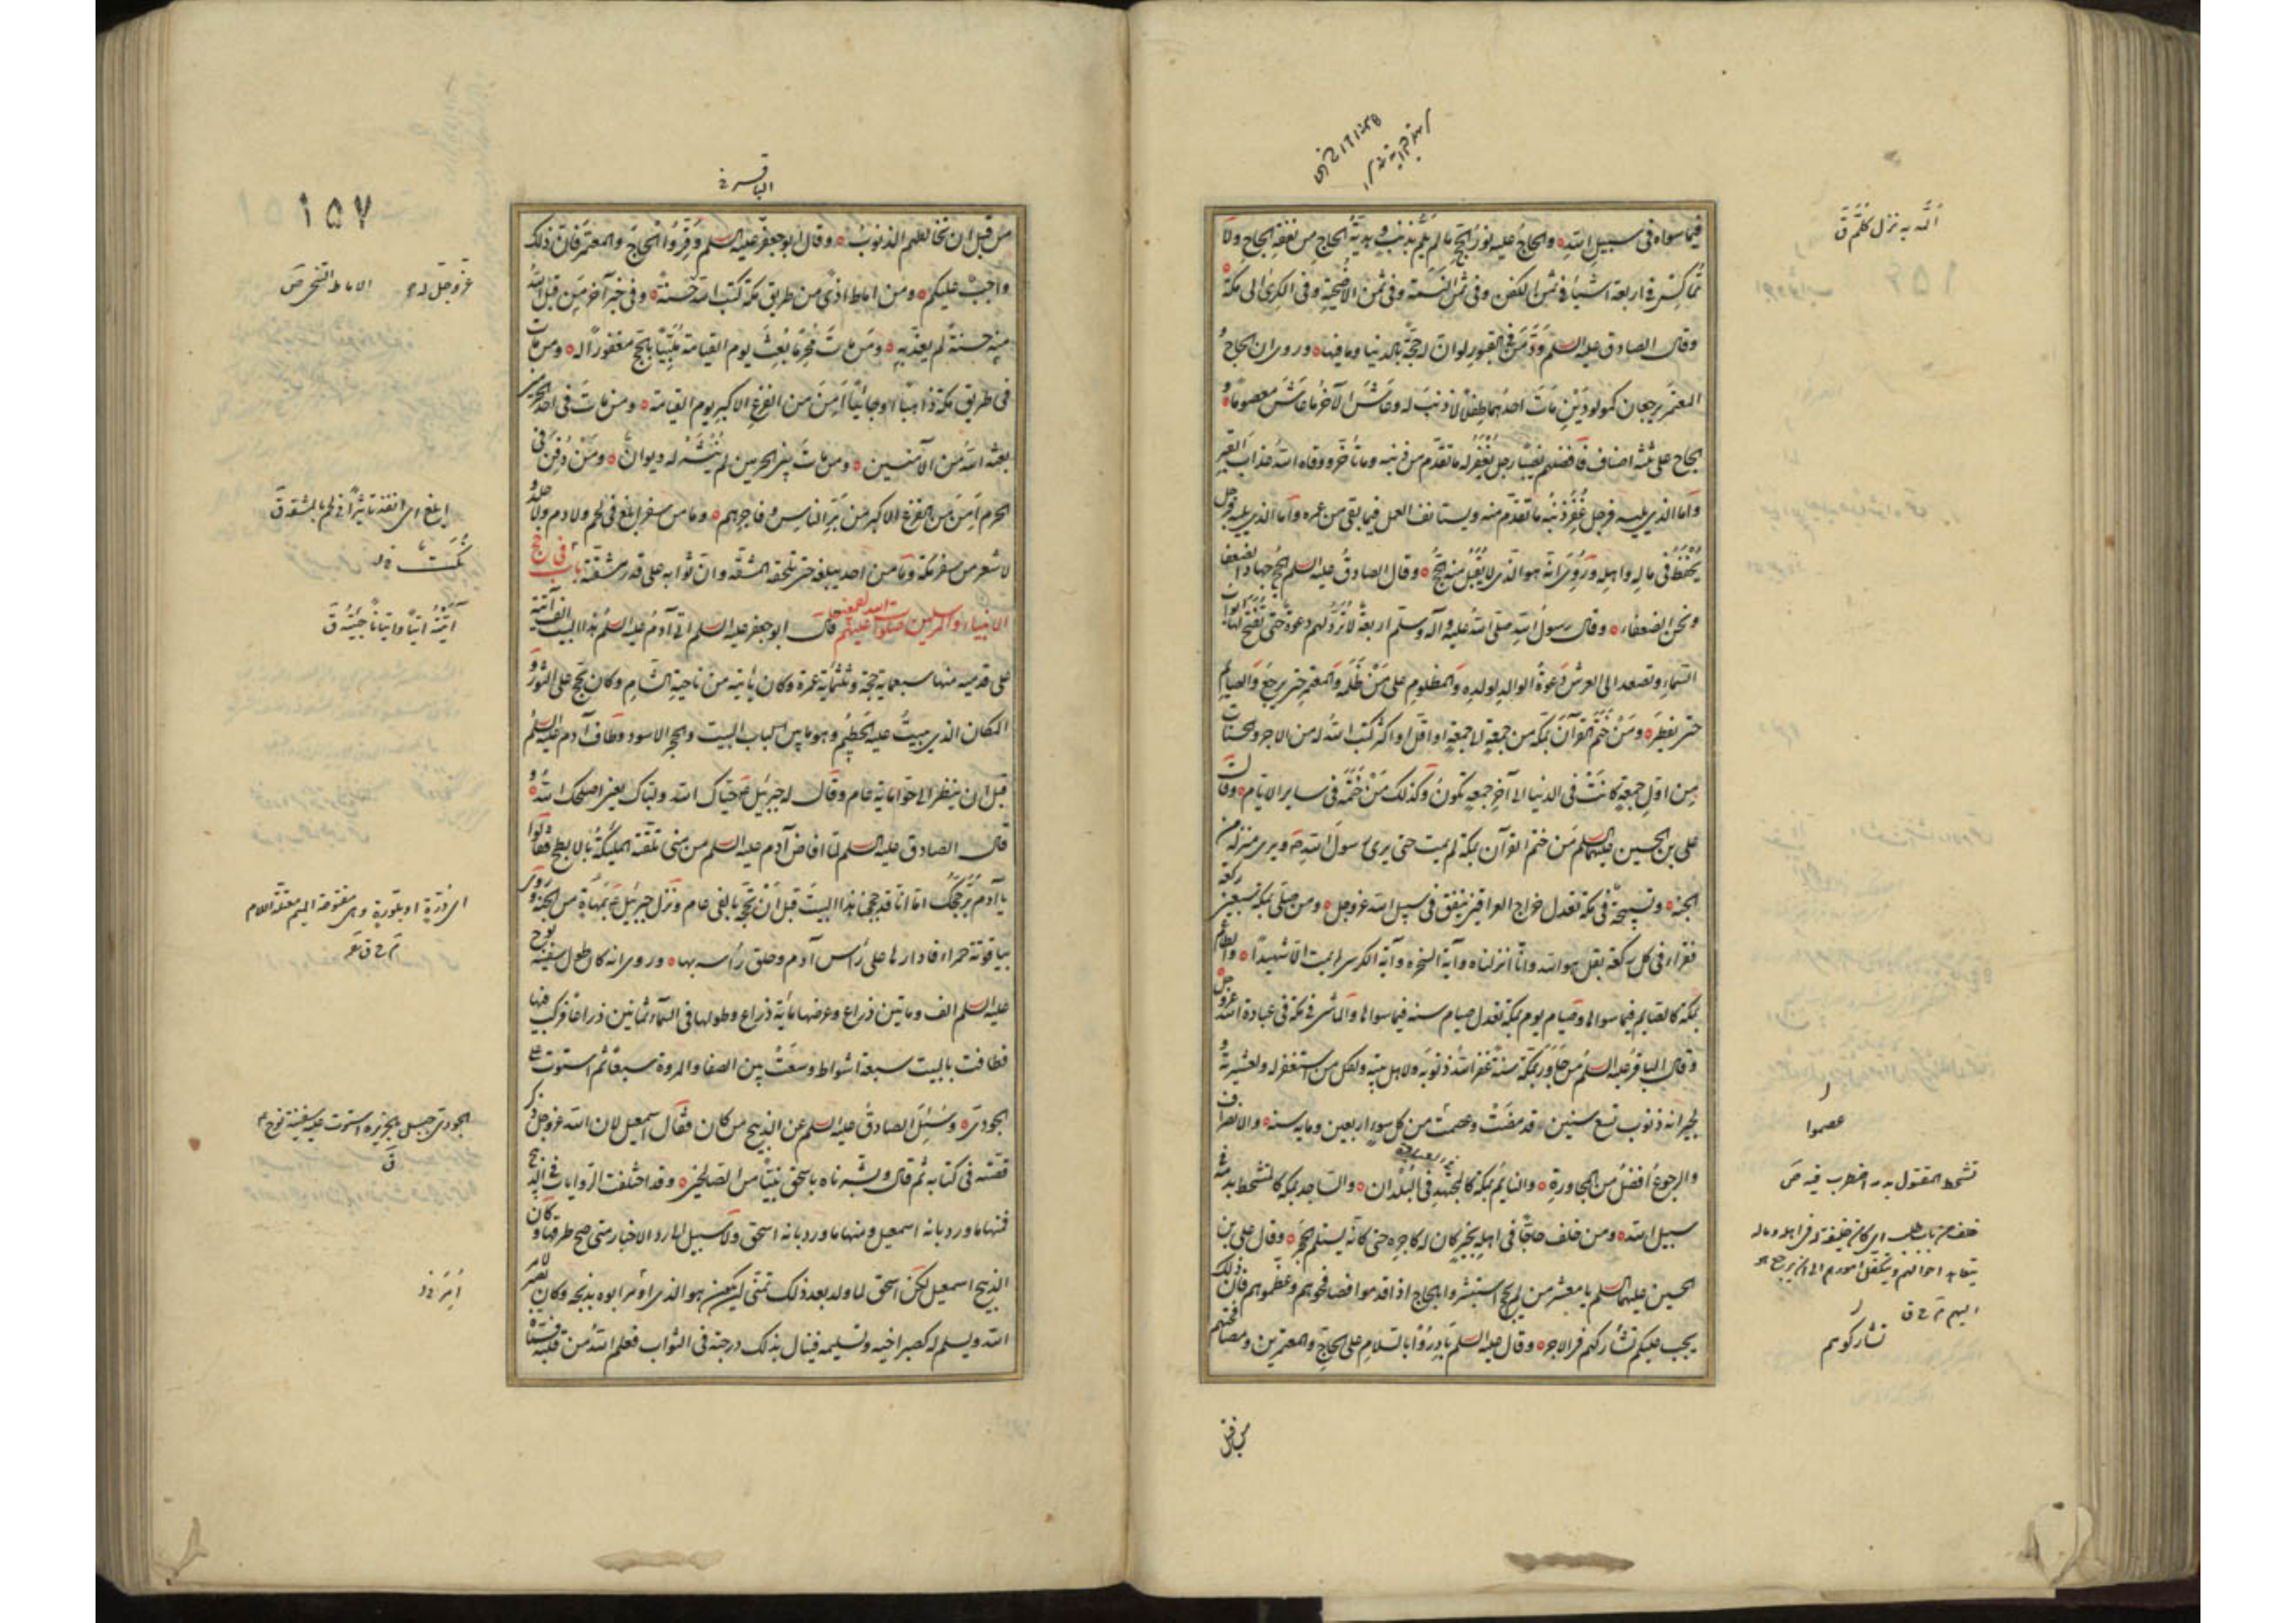 فيما سواه في سبيل الله والحاج عليه نور الحج ما لم يلم بذنب وهدية الحاج من نفقة الحاج ولا
تماكس في اربعة اشياء في ثمن الكفن وفي ثمن النسمة وفي ثمن الاضحية وفي الكرى الى مكة
وقال الصادق عليه السلم ود من في القبور لو ان له حجة بالدنيا وما فيها وروى ان الحاج و
المعتمر يرجعان كمولودين مات احدهما طفلا لا ذنب له وعاش الآخر ما عاش معصوما و
الحاج على ثلثه اصناف فافضلهم نصيبا رجل يغفر له ما تقدم من ذنبه وما تأخر ووقاه الله عذاب القبر
واما الذي يليه فرجل غفر ذنبه ما تقدم منه ويستانف العمل فيما بقى من عمره واما الذي يليه فرجل
يحفظ في ماله واهله وروى انه هو الذي لا يقبل منه الحج وقال الصادق عليه السلم الحج جهاد الضعفا
ونحن الضعفاء وقال رسول الله صلى الله عليه وآله وسلم اربعة لا ترد لهم دعوة حتى تفتح لها ابواب
السماء وتصعد الى العرش دعوة الوالد لولده والمظلوم على من ظلمه والمعتمر حتى يرجع والصايم
حتى يفطر ومن ختم القرآن بمكة من جمعة الى جمعة او اقل او اكثر كتب الله له من الاجر والحسنات
من اول جمعة كانت في الدنيا الى آخر جمعة تكون وكذلك من ختمه في ساير الايام وقال
على بن الحسين عليهما السلم من ختم القرآن بمكة لم يمت حتى يرى رسول الله ص ويرى منزله من
الجنة وتسبيحة في مكة تعدل خراج العراقين ينفق في سبيل الله عز وجل ومن صلى بمكة سبعين ركعة
فقراء في كل ركعة بقل هو الله وانا انزلناه وآية السخرة وآية الكرسي لم يمت الا شهيدا والطاعم
بمكة كالصايم فيما سواها وصيام يوم بمكة تعدل صيام سنة فيما سواها والماشي في مكة في عبادة الله عز وجل
وقال الباقر عليه السلم من جاور بمكة سنة غفر الله ذنوبه ولاهل بيته ولكل من استغفر له ولعشيرته و
لجيرانه ذنوب تسع سنين وقد مضت وعصمت من كل سوء اربعين وماية سنة والانصراف
والرجوع افضل من المجاورة والنايم بمكة كالمجتهد في البلدان والساجد بمكة كالمتشحط بدمه في
سبيل الله ومن خلف حاجا في اهله بخير كان له كاجره حتى كانه يستلم الحجر وقال على بن
الحسين عليهما السلم يا معشر من لم يحج استبشروا بالحاج اذا قدموا فصافحوهم وعظموهم فان ذلك
يجب عليكم تشاركهم في الاجر وقال عليه السلم بادروا بالسلام على الحاج والمعتمرين ومصافحتهم
من قبل
ألم به نزل كلمم ق
عصموا
تشحط المقتول بدمه اضطرب فيه ص
تشاركوهم
الباقر
١٥٧
من قبل ان تخالطهم الذنوب وقال ابو جعفر عليه السلم وقروا الحاج والمعتمر فان ذلك
واجب عليكم ومن اماط اذى من طريق مكة كتب الله له حسنة وفي خبر آخر من قبل الله
منه حسنة لم يعذبه ومن مات محرما بعث يوم القيامة ملبيا بالحج مغفورا له ومن مات
في طريق مكة ذاهبا او جائيا امن من الفزع الاكبر يوم القيامة ومن مات في احد الحرمين
بعثه الله من الآمنين ومن مات بين الحرمين لم ينشر له ديوان ومن دفن في
الحرم امن من الفزع الاكبر من بر الناس وفاجرهم وما من سفر ابلغ في لحم ولا دم ولا جلد و
لا شعر من سفر مكة وما من احد يبلغه حتى تلحقه المشقة وان ثوابه على قدر مشقته باب في حج
الانبياء والمرسلين صلوات الله عليهم قال ابو جعفر عليه السلم اتى آدم عليه السلم هذا البيت الف اتية
على قدميه منها سبعماية حجة وثلثماية عمرة وكان ياتيه من ناحية الشام وكان يحج على الثور و
المكان الذي يبيت عليه الحطيم وهو ما بين باب البيت والحجر الاسود وطاف آدم عليه السلم
قبل ان ينظر الى حوا ماية عام وقال له جبرئيل ع حياك الله ولباك يعنى اصلحك الله و
قال الصادق عليه السلم لما افاض آدم عليه السلم من منى تلقته الملئكة بالابطح فقالوا
يا آدم بر حجك اما انا قد حججنا هذا البيت قبل ان تحجه بالفى عام ونزل جبرئيل ع بمهاة من الجنة وروى
بياقوتة حمراء فادارها على رأس آدم وحلق رأسه بها وروى انه كان طول سفينة نوح
عليه السلم الف وماتين ذراع وعرضها ماية ذراع وطولها في السماء ثمانين ذراعا فركب فيها
فطافت بالبيت سبعة اشواط وسعت بين الصفا والمروة سبعا ثم استوت على
الجودى وسئل الصادق عليه السلم عن الذبيح من كان فقال اسمعيل لان الله عز وجل ذكر
قصته في كتابه ثم قال وبشرناه باسحق نبيا من الصالحين وقد اختلفت الروايات في الذبيح
فمنها ما ورد بانه اسمعيل ومنها ما ورد بانه اسحق ولا سبيل الى رد الاخبار متى صح طرقها وكان
الذبيح اسمعيل لكن اسحق لما ولد بعد ذلك تمنى ان يكون هو الذي اُمر ابوه بذبحه وكان يصبر لامر
الله ويسلم له كصبر اخيه وتسليمه فينال بذلك درجته في الثواب فعلم الله من قلبه
عز وجل له ح
الاماط التنحى ص
آتيته اتيا واتيانا جئته ق
الجودى جبل بالجزيرة استوت عليه سفينة نوح ع
ق